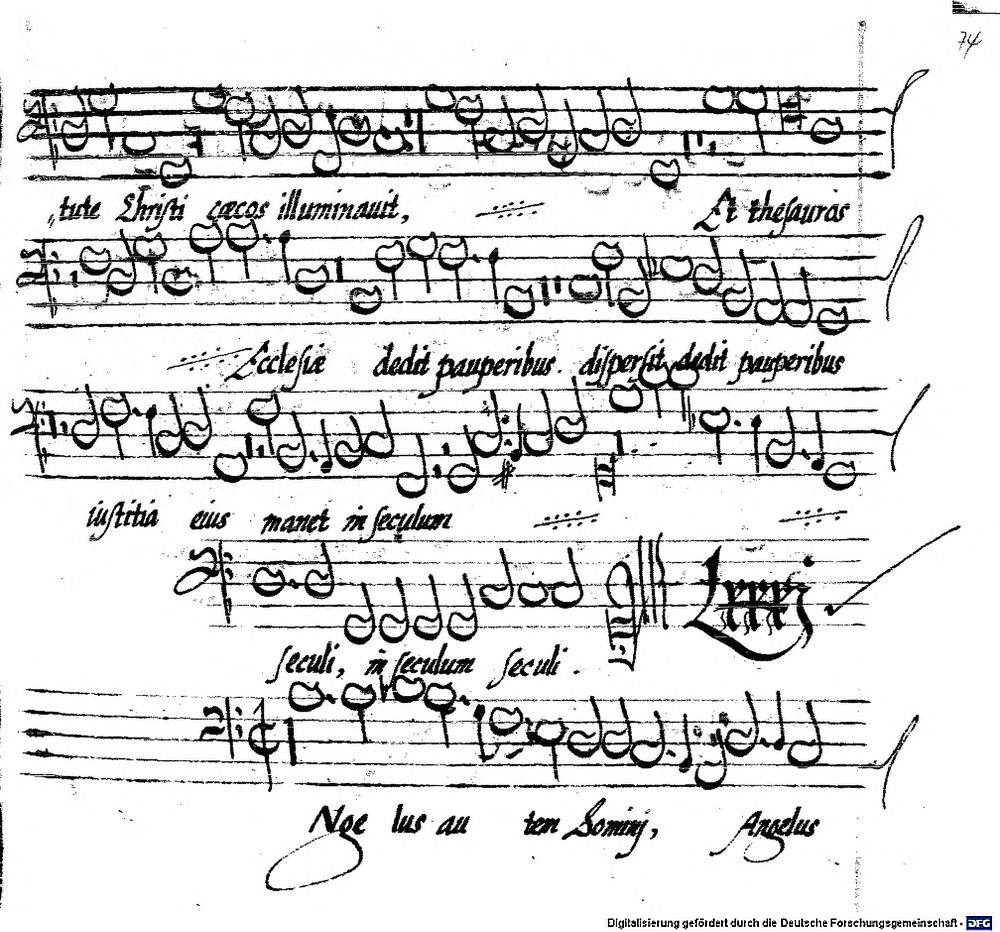 74
tute Christi cæcos illuminauit, Et thesauros
Ecclesiæ dedit pauperibus. dispersit dedit pauperibus
iustitia eius manet in seculum
seculi, in seculum seculi.
Lxxxj
Nge lus au tem Domini, Angelus
Digitalisierung gefördert durch die Deutsche Forschungsgemeinschaft - DFG